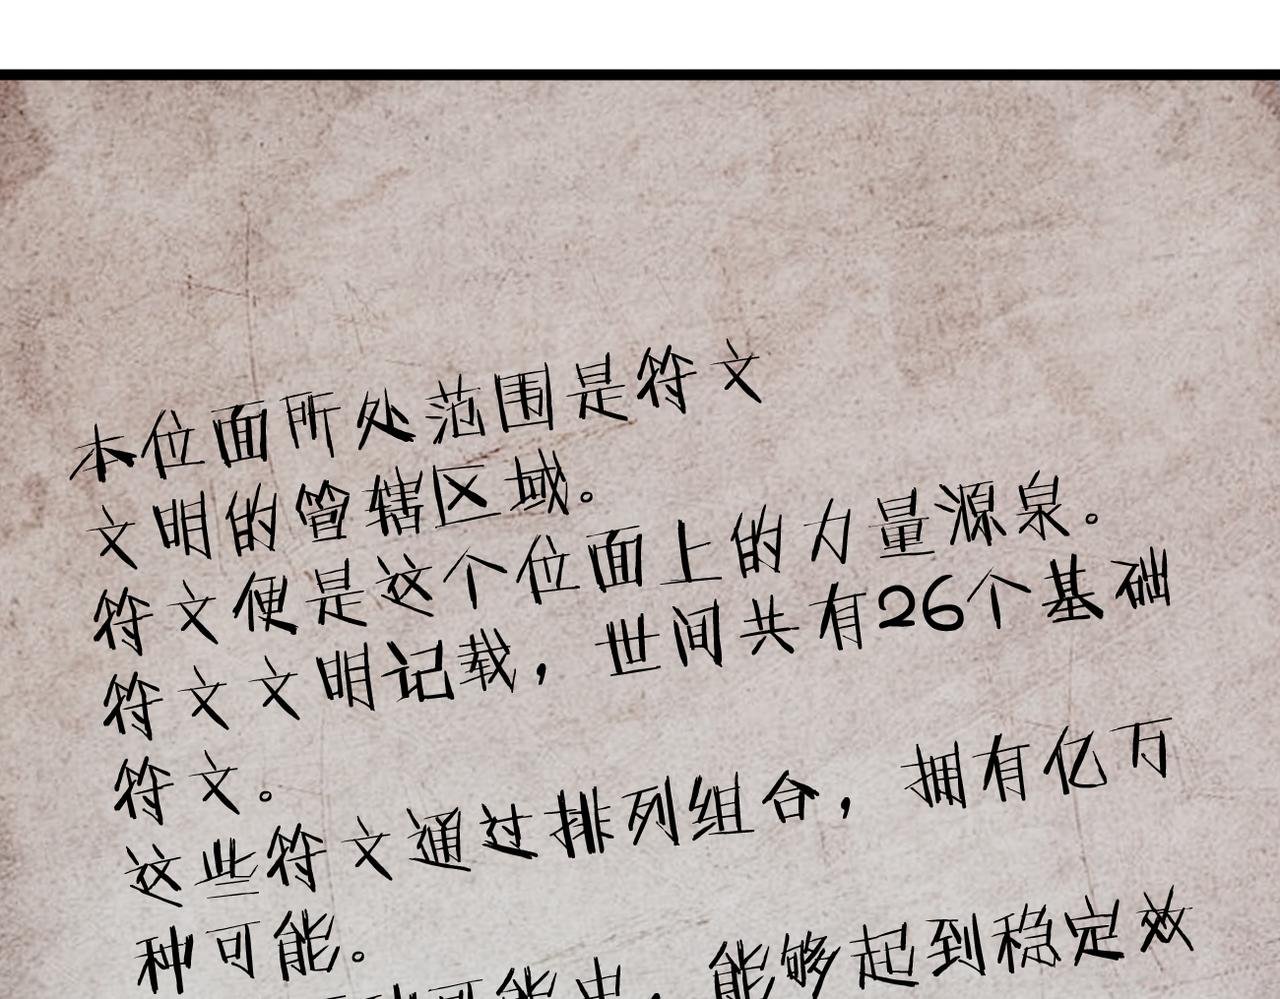 本位面所处范围是符文
文明的管辖区域。
符文便是这个位面上的力量源泉。
符文文明记载，世间共有26个基础
符文。
这些符文通过排列组合，拥有亿万
种可能。
能中，能够起到稳定效